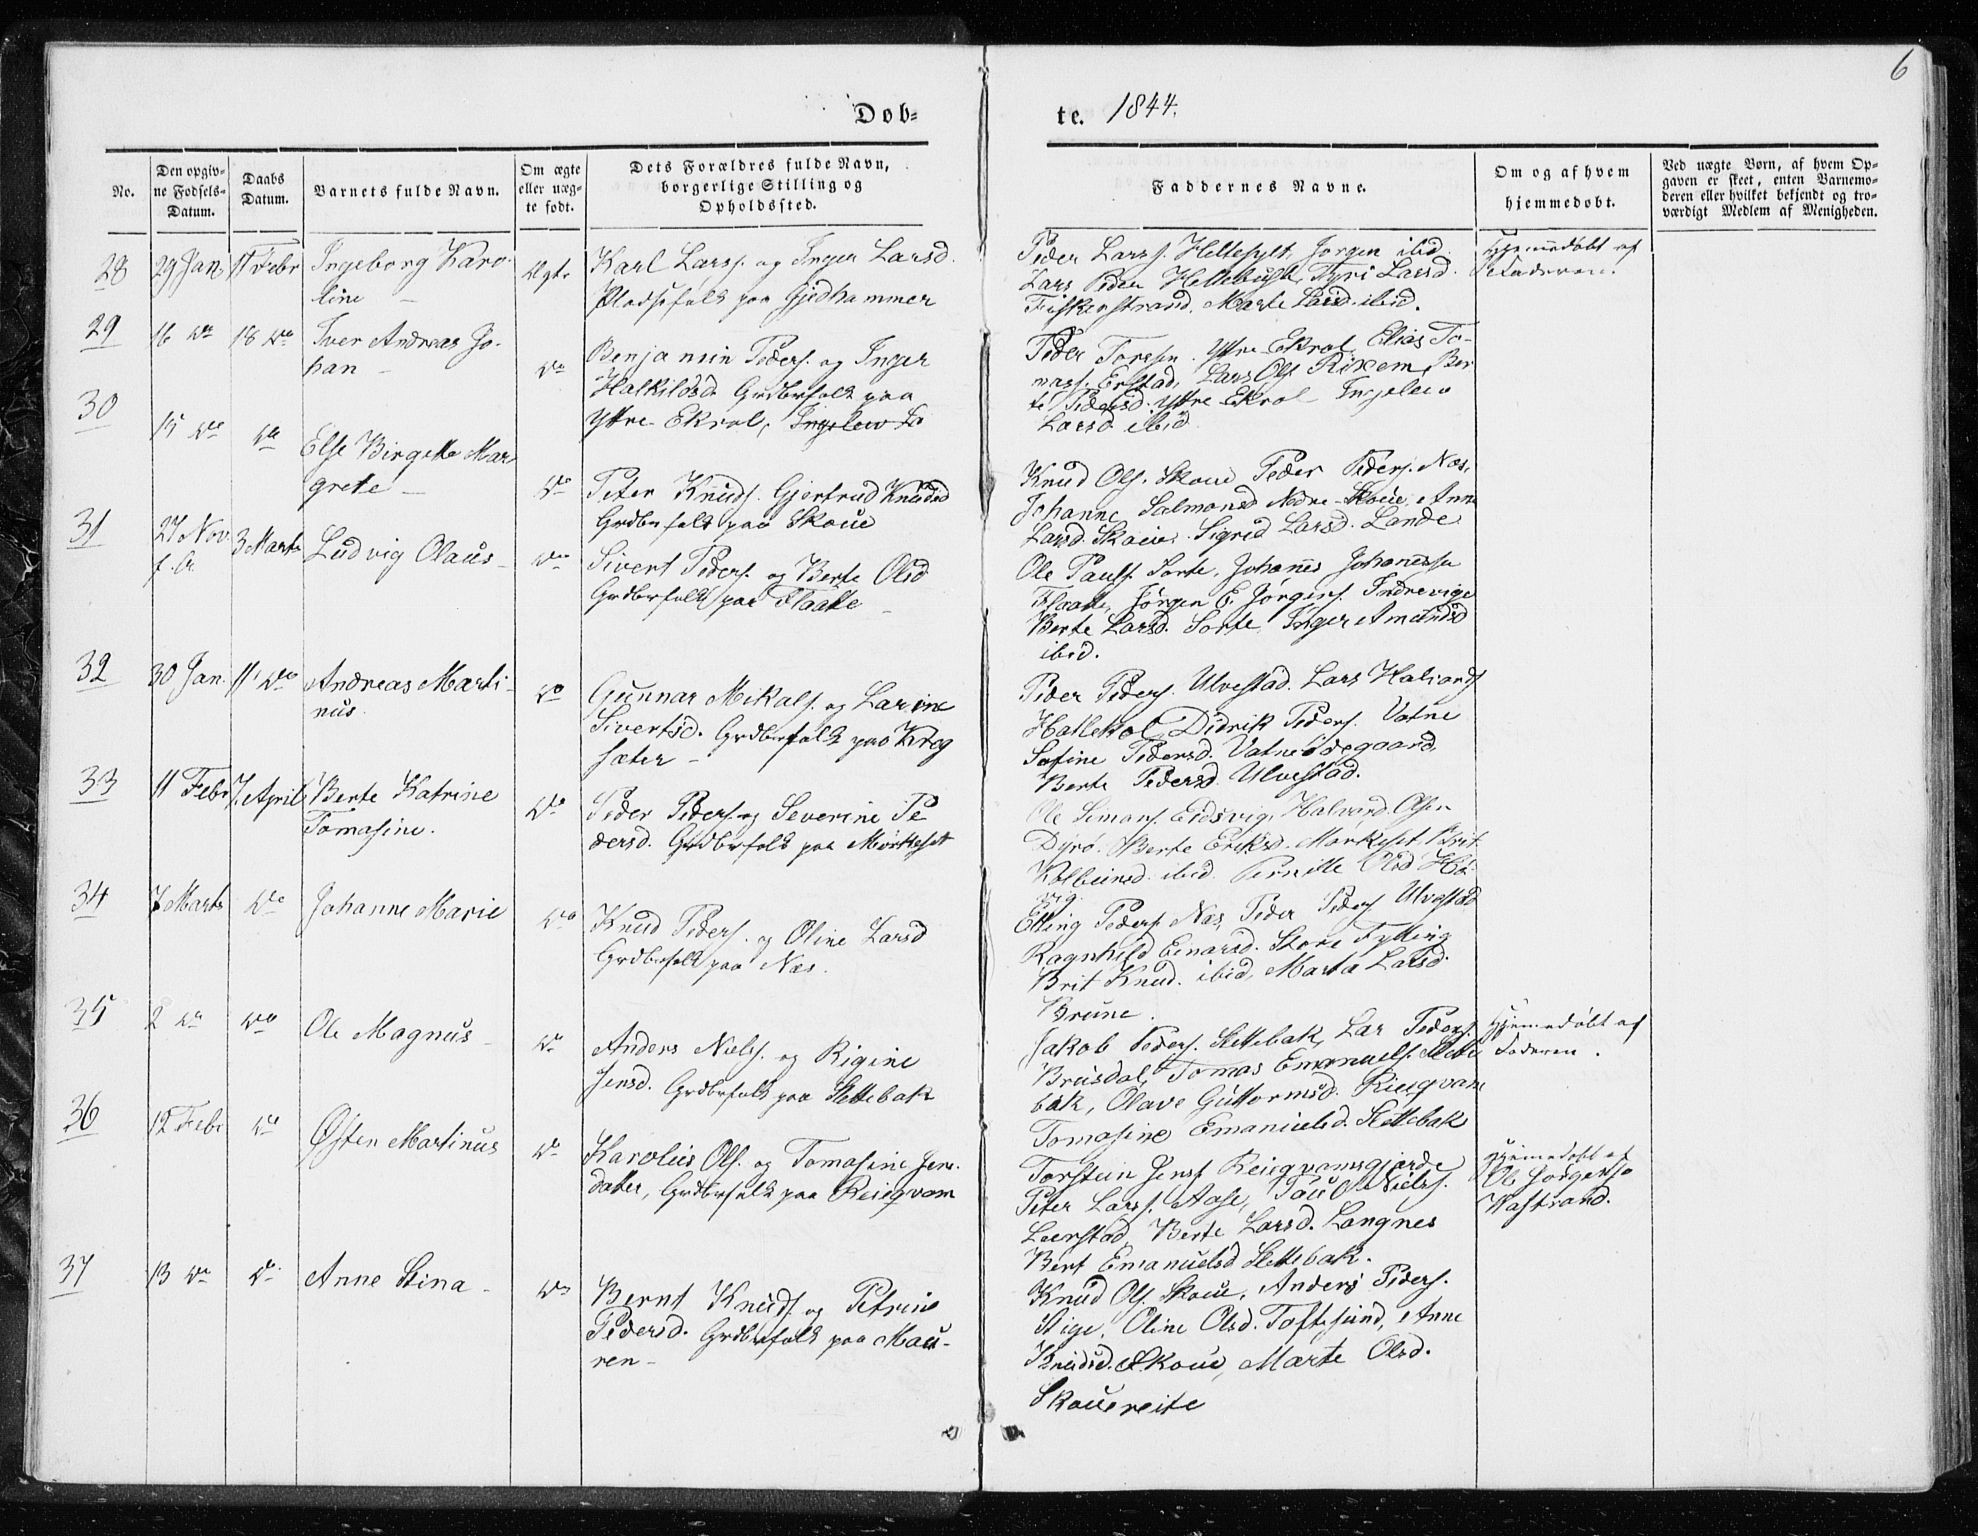 6
Døb-
te. 1844.
No.
Den opgiv-
ne Fødsels-
Datum.
Daabs
Datum.
Barnets fulde Navn.
Om ægte
eller uæg-
te født.
Dets Forældres fulde Navn,
borgerlige Stilling og
Opholdssted.
Faddernes Navne.
Om og af hvem
hjemmedøbt.
Ved uægte Børn, af hvem Op-
gaven er skeet, enten Barnemo-
deren eller hvilket bekjendt og tro-
værdigt Medlem af Menigheden.
28 29 Jan. 11 Febr Ingeborg Karo-
line
Ægte
Karl Larss. og Inger Larsd.
Pladsefolk paa Gjedhammer
Peder Larss. Hellesylt, Jørgen ibid
Lars Peder Tyri Larsd.
Fiskerstrand, Marte Larsd. ibid.
Hjemmedøbt af
Faderen.
29 16 do 18 do Iver Andreas Jo-
han
do
Benjamin Peders. og Inger
Halkildsd. Grdbrfolk paa
Yttre Ekrol, Ingelev La
Peder Torssen Yttre Ekrol, Elias To-
mass. Erstad, Lars Ols. Rikem, Ber-
te Pedersd. Yttre Ekrol Ingelev
Larsd ibid
30 15 do do Else Birgitte Mar-
grete
do
Peter Knuds. Gjertrud Knudsd
Grdbrfolk paa Skoue
Knud Ols. Skoue Peder Peders. Næs,
Johanne Salmonsd Nedre Skoue, Anne
Larsd. Skoue Sigrid Larsd. Lande
31 27 Nov
f. A. 3 Marts Ludvig Olaus
do
Sivert Peders. og Berte Olsd
Grdbrfolk paa Flaate
Ole Pauls. Sorte, Johannes Johannessen
Flaate, Jørgen E. Jørgens. Indrevige
Berte Larsd. Sorte Inger Amundsd
ibid.
32 30 Jan. 11 do Andreas Marti-
nus.
do
Gunnar Mikals. og Larine
Sivertsd. Grdbrfolk paa Krog
sæter
Peder Peders. Ulvestad. Lars
Hallekol Didrik Peders. Vatne
Sofine Pedersd. Vatne Ødegaard,
Berte Pedersd Ulvestad.
33 11 Febr 7 April Berte Katrine
Tomasine.
do
Peder Peders. og Severine Pe
dersd. Grdbrfolk paa Mørkeset
Ole Simons. Eidsvig, Halvard Olsen
Dyrø. Berte Eriksd. Mørkeset, Brit
Kolbeinsd. ibid. Pernille Olsd Hø-
vig.
34 7 Marts do Johanne Marie
do
Knud Peders. og Oline Larsd
Grdbrfolk paa Næs.
Elling Peders Næs, Peder Peders Ulvestad
Ragnhild Einarsd. Store Fylling
Brit Knud. ibid, Marta Larsd.
Brune.
35 2 do do Ole Magnus
do
Anders Niels. og Rigine
Jensd. Grdbrfolk paa Slettebak
Jakob Peders. Slettebak, Lar Peders.
Brusdal, Tomas Emanuels. Slette
bak, Olave Guttormsd. Rieigvam
Tomasine Emanuelsd. Slettebak
Hjemmedøbt af
Faderen.
36 12 Febr do Østen Martinus
do
Karolius Ols. og Tomasine Jens
datter, Grdbrfolk paa Reiegvam
Torstein Jens. Reiegvamsgjærde
Peter Larss. Aase, Paul O. Niels.
Leerstad, Berte Larsd. Langnes
Bert Emanuelsd Slettebak.
Hjemmedøbt af
Ole Jørgensø
Vastrand.
37 13 do do. Anne Stina
do
Bernt Knuds. og Petrine
Pedersd. Grdbrfolk paa Mau-
ren
Knud Ols. Skoue, Anders Peders.
Stige, Oline Olsd. Toftesund, Anne
Knudsd. Skoue, Marte Olsd.
Skouereite